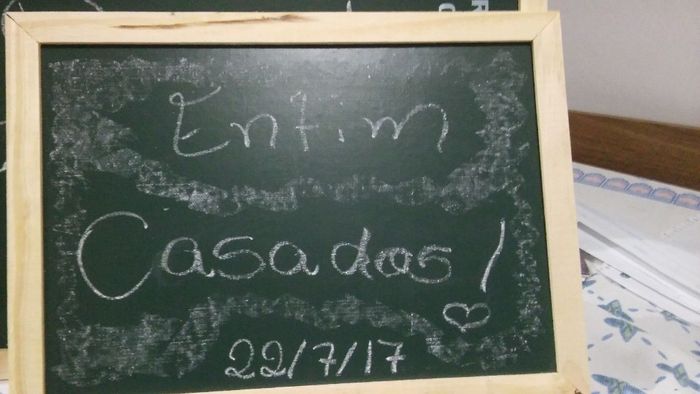 Enfim
Casados!
22/7/17